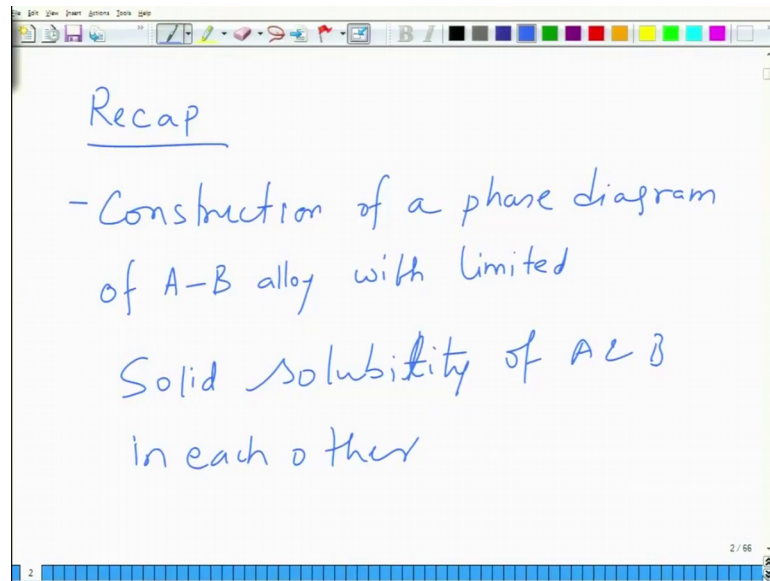 File Edit View Insert Actions Tools Help
B I
Recap
- Construction of a phase diagram
of A-B alloy with limited
Solid solubility of A & B
in each other
2 / 66
2